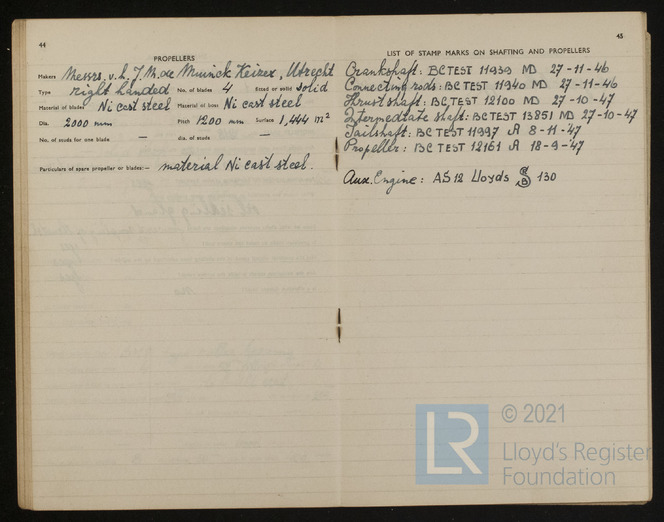 44
PROPELLERS
Makers Messrs. v.h. J. M. de Muinck Keizer, Utrecht
Type right handed No. of blades 4 fitted or solid solid
Material of blades Ni cast steel Material of boss Ni cast steel
Dia. 2000 mm Pitch 1200 mm Surface 1,444 m²
No. of studs for one blade — dia. of studs —
Particulars of spare propeller or blades:— material Ni cast steel.
45
LIST OF STAMP MARKS ON SHAFTING AND PROPELLERS
Crankshaft: BC TEST 11939 MD 27-11-46
Connecting rods: BC TEST 11940 MD 27-11-46
Thrust shaft: BC TEST 12100 MD 27-10-47
Intermediate shaft: BC TEST 13851 MD 27-10-47
Tailshaft: BC TEST 11997 A 8-11-47
Propeller: BC TEST 12161 A 18-9-47
Aux. Engine: AS 12 Lloyds 130
LR © 2021
Lloyd's Register
Foundation